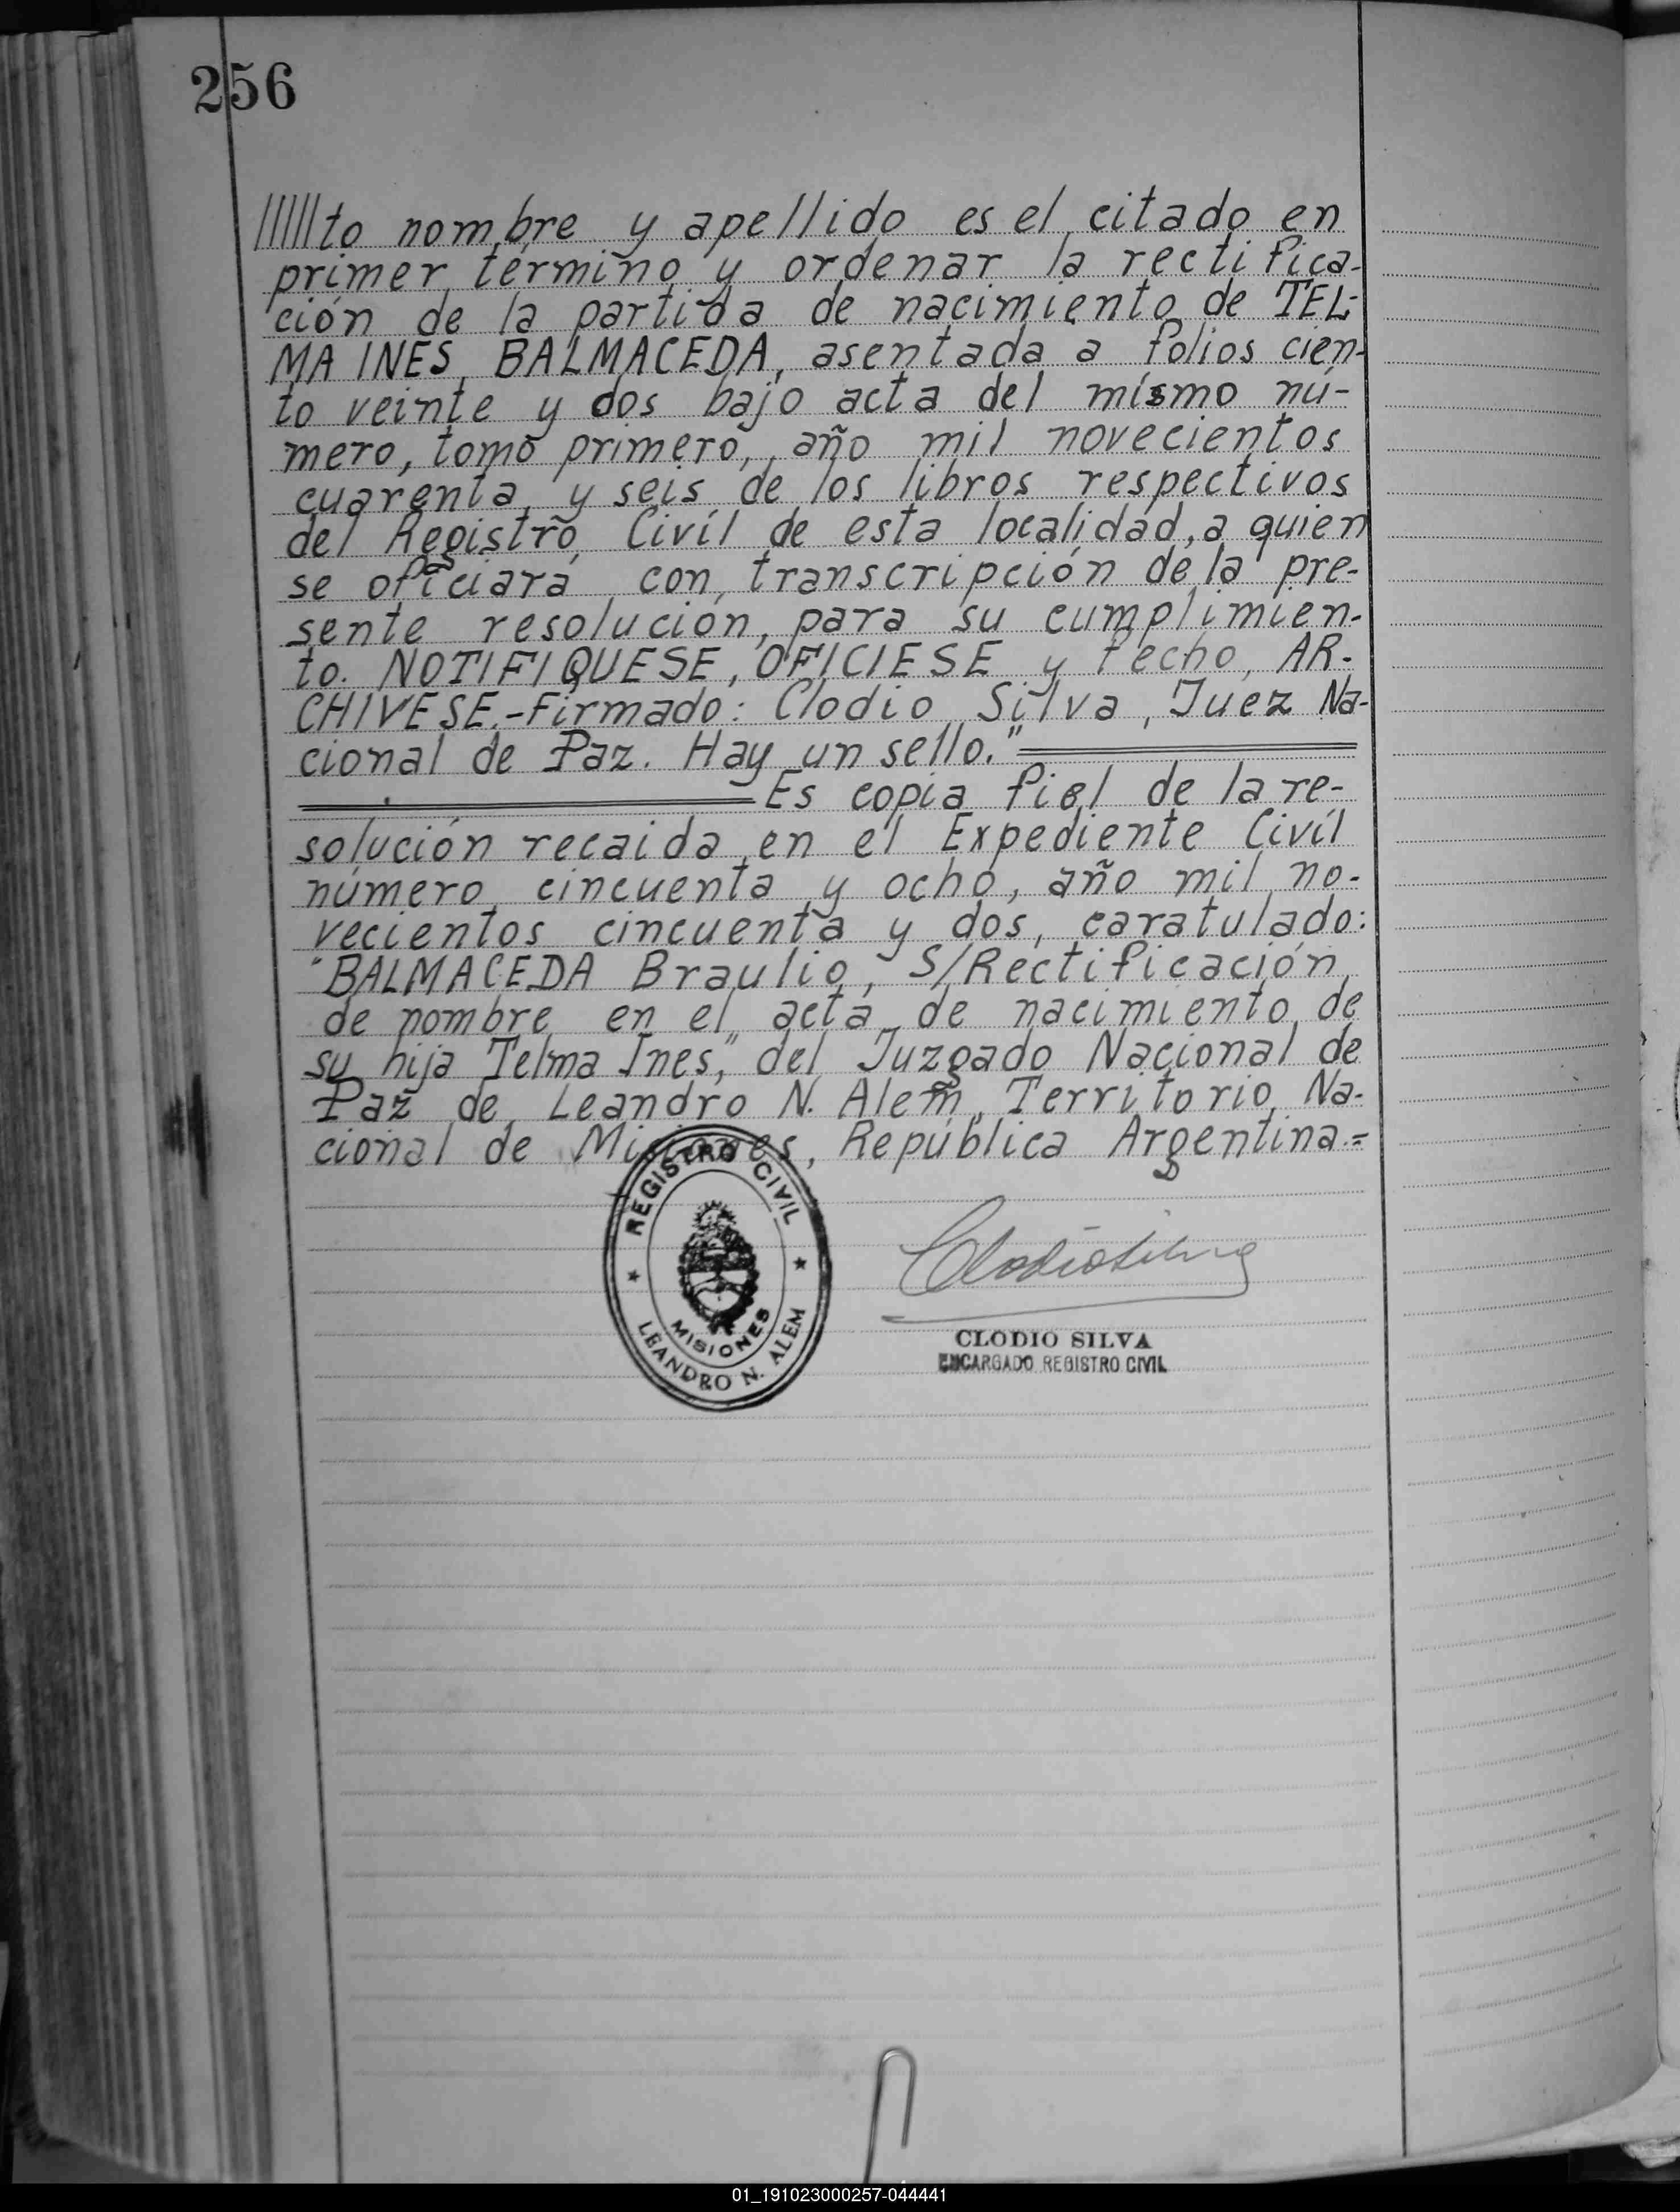 256
//////to nombre y apellido es el citado en
primer término y ordenar la rectifica-
ción de la partida de nacimiento de TEL-
MA INES BALMACEDA, asentada a folios cien-
to veinte y dos bajo acta del mismo nú-
mero, tomo primero, año mil novecientos
cuarenta y seis de los libros respectivos
del Registro Civíl de esta localidad, a quien
se oficiará con transcripción de la pre-
sente resolución, para su cumplimien-
to. NOTIFIQUESE, OFICIESE y fecho, AR-
CHIVESE.-Firmado: Clodio Silva, Juez Na-
cional de Paz. Hay un sello."
Es copia fiel de la re-
solución recaida en el Expediente Civíl
número cincuenta y ocho, año mil no-
vecientos cincuenta y dos, caratulado:
"BALMACEDA Braulio, S/Rectificación
de nombre en el acta de nacimiento de
su hija Telma Ines," del Juzgado Nacional de
Paz de Leandro N. Alem, Territorio Na-
cional de Misiones, República Argentina.=
REGISTRO CIVIL
MISIONES
LEANDRO N. ALEM
Clodio Silva
CLODIO SILVA
ENCARGADO REGISTRO CIVIL
01_191023000257-044441